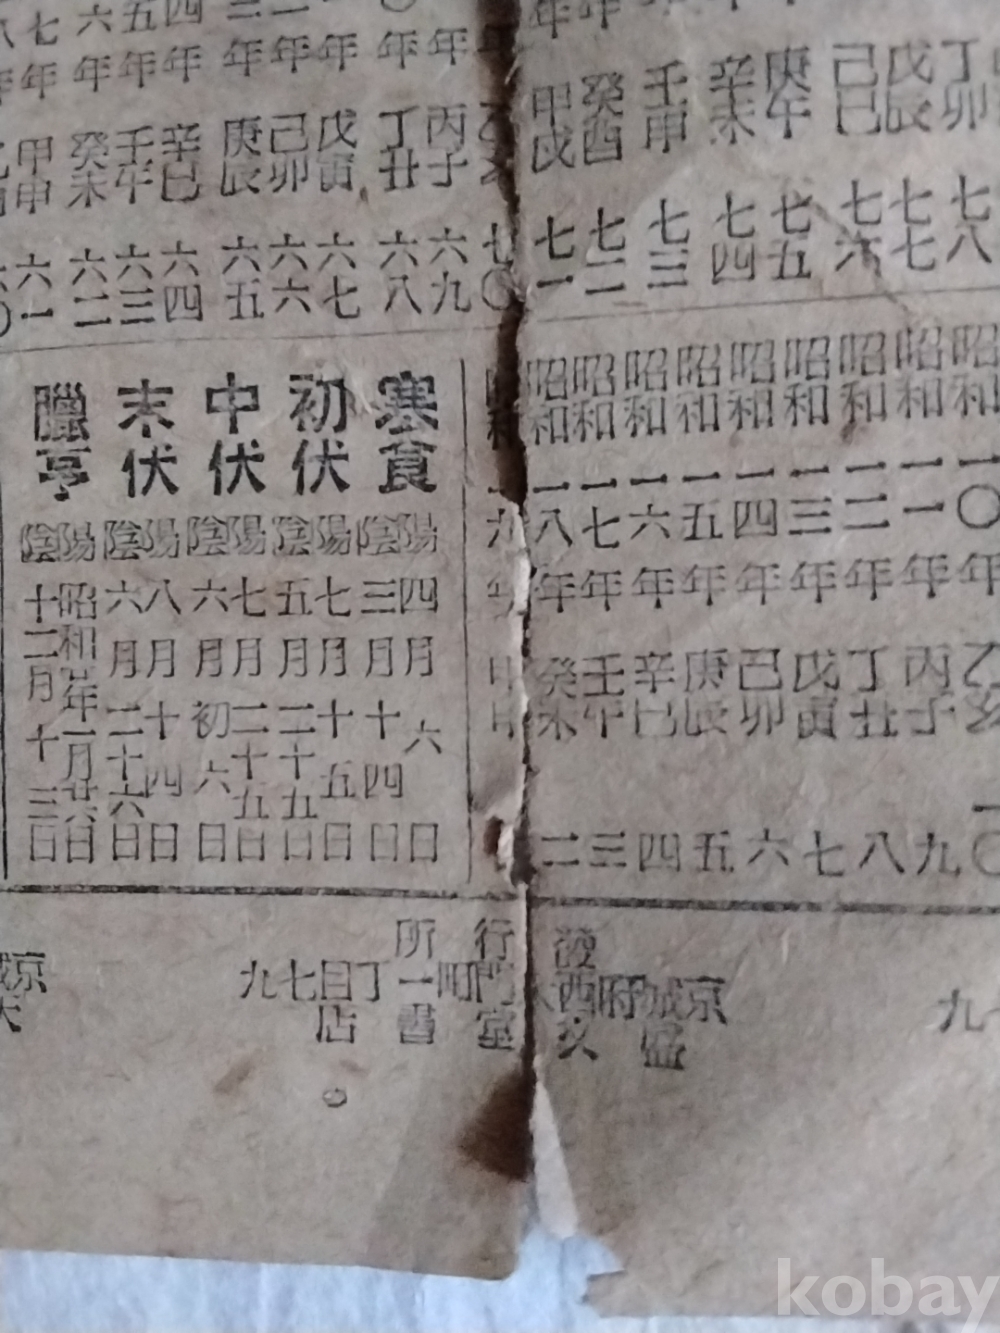 丁卯七八
戊辰七七
己巳七六
庚午七五
辛未七四
壬申七三
年癸酉七二
年甲戌七一
年乙亥七〇
年丙子六九
年丁丑六八
年戊寅六七
年己卯六六
年庚辰六五
四年辛巳六四
五年壬午六三
六年癸未六二
七年甲申六一
昭和一〇年乙亥一〇
昭和一一年丙子九
昭和一二年丁丑八
昭和一三年戊寅七
昭和一四年己卯六
昭和一五年庚辰五
昭和一六年辛巳四
昭和一七年壬午三
昭和一八年癸未二
昭和一九年甲申
寒食
陽四月六日
陰三月十四日
初伏
陽七月十五日
陰五月二十五日
中伏
陽七月二十五日
陰六月初六日
末伏
陽八月十四日
陰六月二十六日
臘亨
陽昭和廿年一月廿六日
陰十二月十三日
發行所
京城府西大門町一丁目七九
盛文堂書店
京
kobay